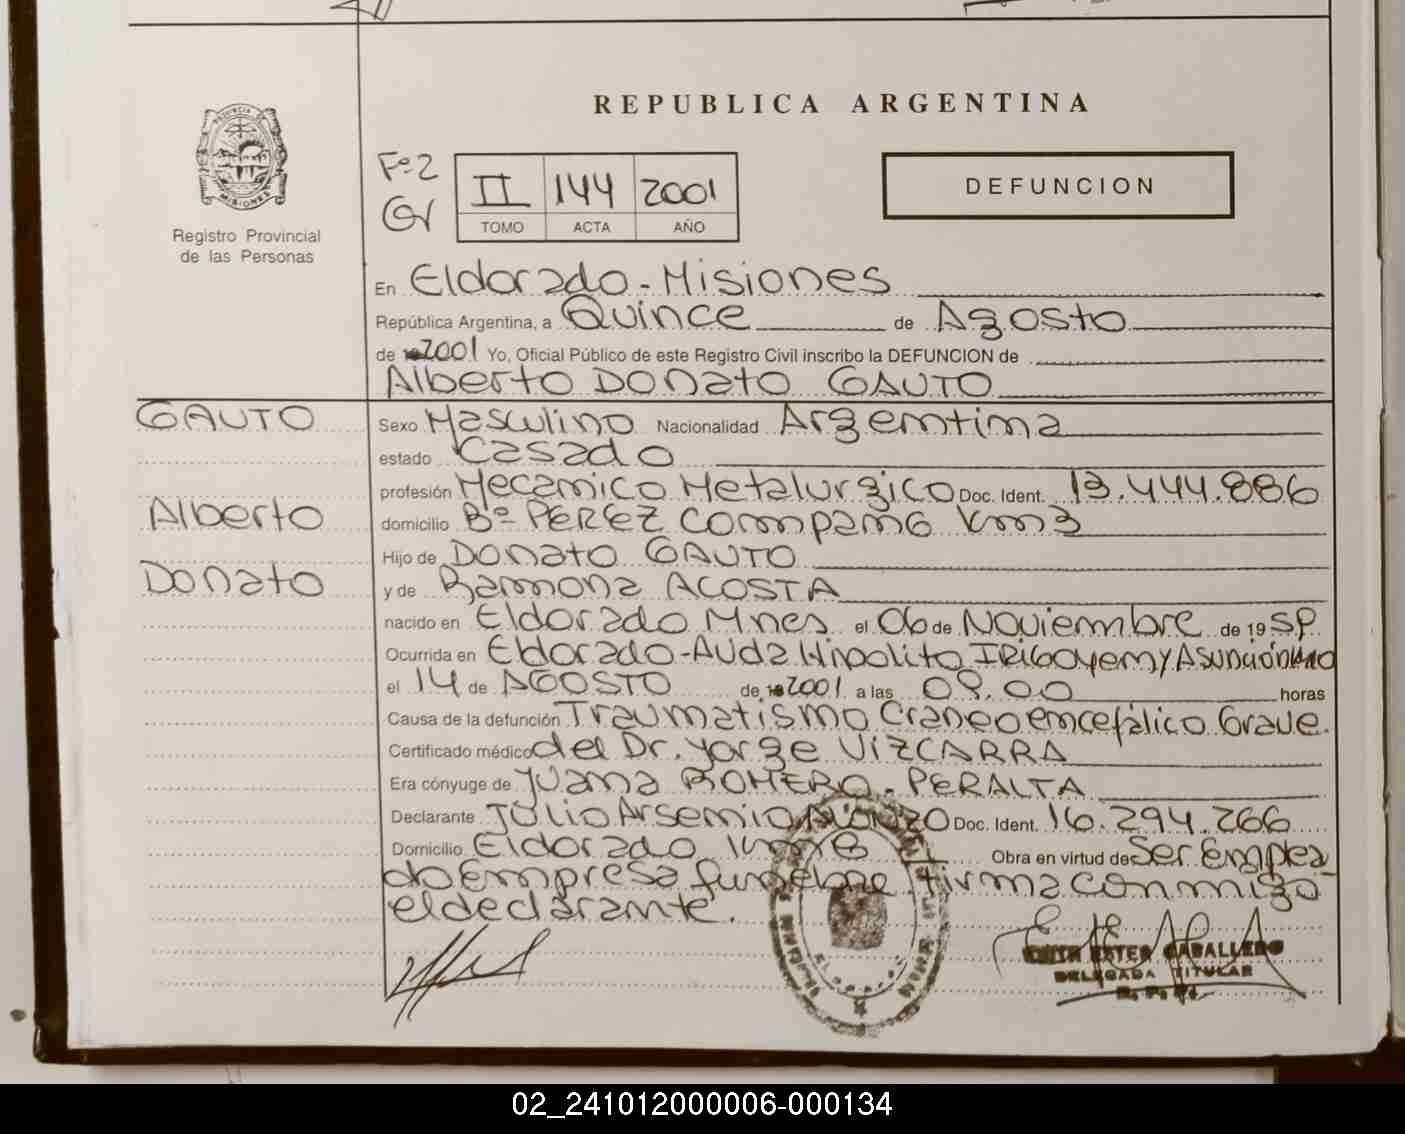 REPUBLICA ARGENTINA
PROVINCIA DE
MISIONES
Registro Provincial
de las Personas
Fº2
II 144 2001
TOMO ACTA AÑO
DEFUNCION
En Eldorado - Misiones
República Argentina, a Quince de Agosto
de 2001 Yo, Oficial Público de este Registro Civil inscribo la DEFUNCION de
Alberto Donato GAUTO
GAUTO
Alberto
Donato
Sexo Masculino Nacionalidad Argentina
estado Casado
profesión Mecanico Metalurgico Doc. Ident. 13.444.886
domicilio Bº PEREZ Compamo Km3
Hijo de Donato GAUTO
y de Ramona ACOSTA
nacido en Eldorado Mnes el 06 de Noviembre de 1959
Ocurrida en Eldorado - Avda Hipolito IRigoyem y ASunción
el 14 de AGOSTO de 2001 a las 09.00 horas
Causa de la defunción Traumatismo Craneoencefálico Grave.
Certificado médico del Dr. Jorge VIZCARRA
Era cónyuge de Juana ROMERO - PERALTA
Declarante Julio Arsemio Alonzo Doc. Ident. 16.294.266
Domicilio Eldorado Obra en virtud de Ser Emplea
do Empresa funebre. firma conmigo
el declarante.
EDITH ESTER CABALLERO
DELEGADA TITULAR
R. P. P.
02_241012000006-000134